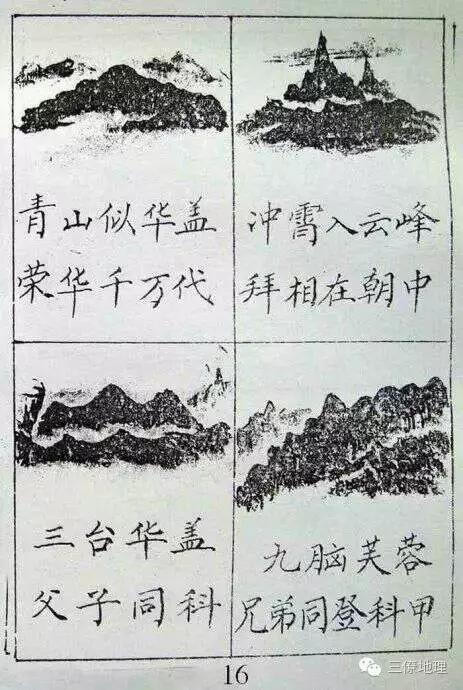 青山似华盖
荣华千万代
冲霄入云峰
拜相在朝中
三台华盖
父子同科
九脑芙蓉
兄弟同登科甲
16
三僚地理